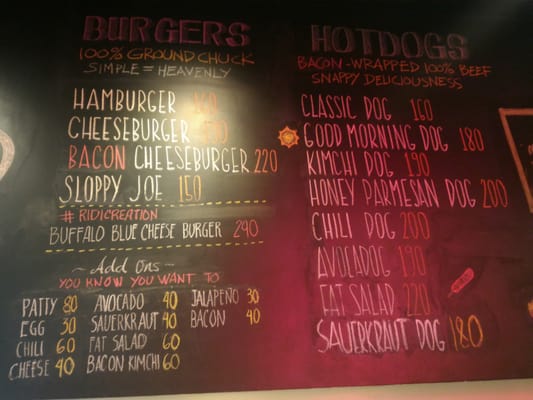 BURGERS
100% GROUND CHUCK
SIMPLE = HEAVENLY
HAMBURGER
CHEESEBURGER
BACON CHEESEBURGER 220
SLOPPY JOE 150
# RIDICREATION
BUFFALO BLUE CHEESE BURGER 290
~ Add Ons ~
YOU KNOW YOU WANT TO
PATTY 80 AVOCADO 40 JALAPEÑO 30
EGG 30 SAUERKRAUT 40 BACON 40
CHILI 60 FAT SALAD 60
CHEESE 40 BACON KIMCHI 60
HOTDOGS
BACON-WRAPPED 100% BEEF
SNAPPY DELICIOUSNESS
CLASSIC DOG 160
GOOD MORNING DOG 180
KIMCHI DOG 190
HONEY PARMESAN DOG 200
CHILI DOG 200
AVOCADOG 190
FAT SALAD 220
SAUERKRAUT DOG 180